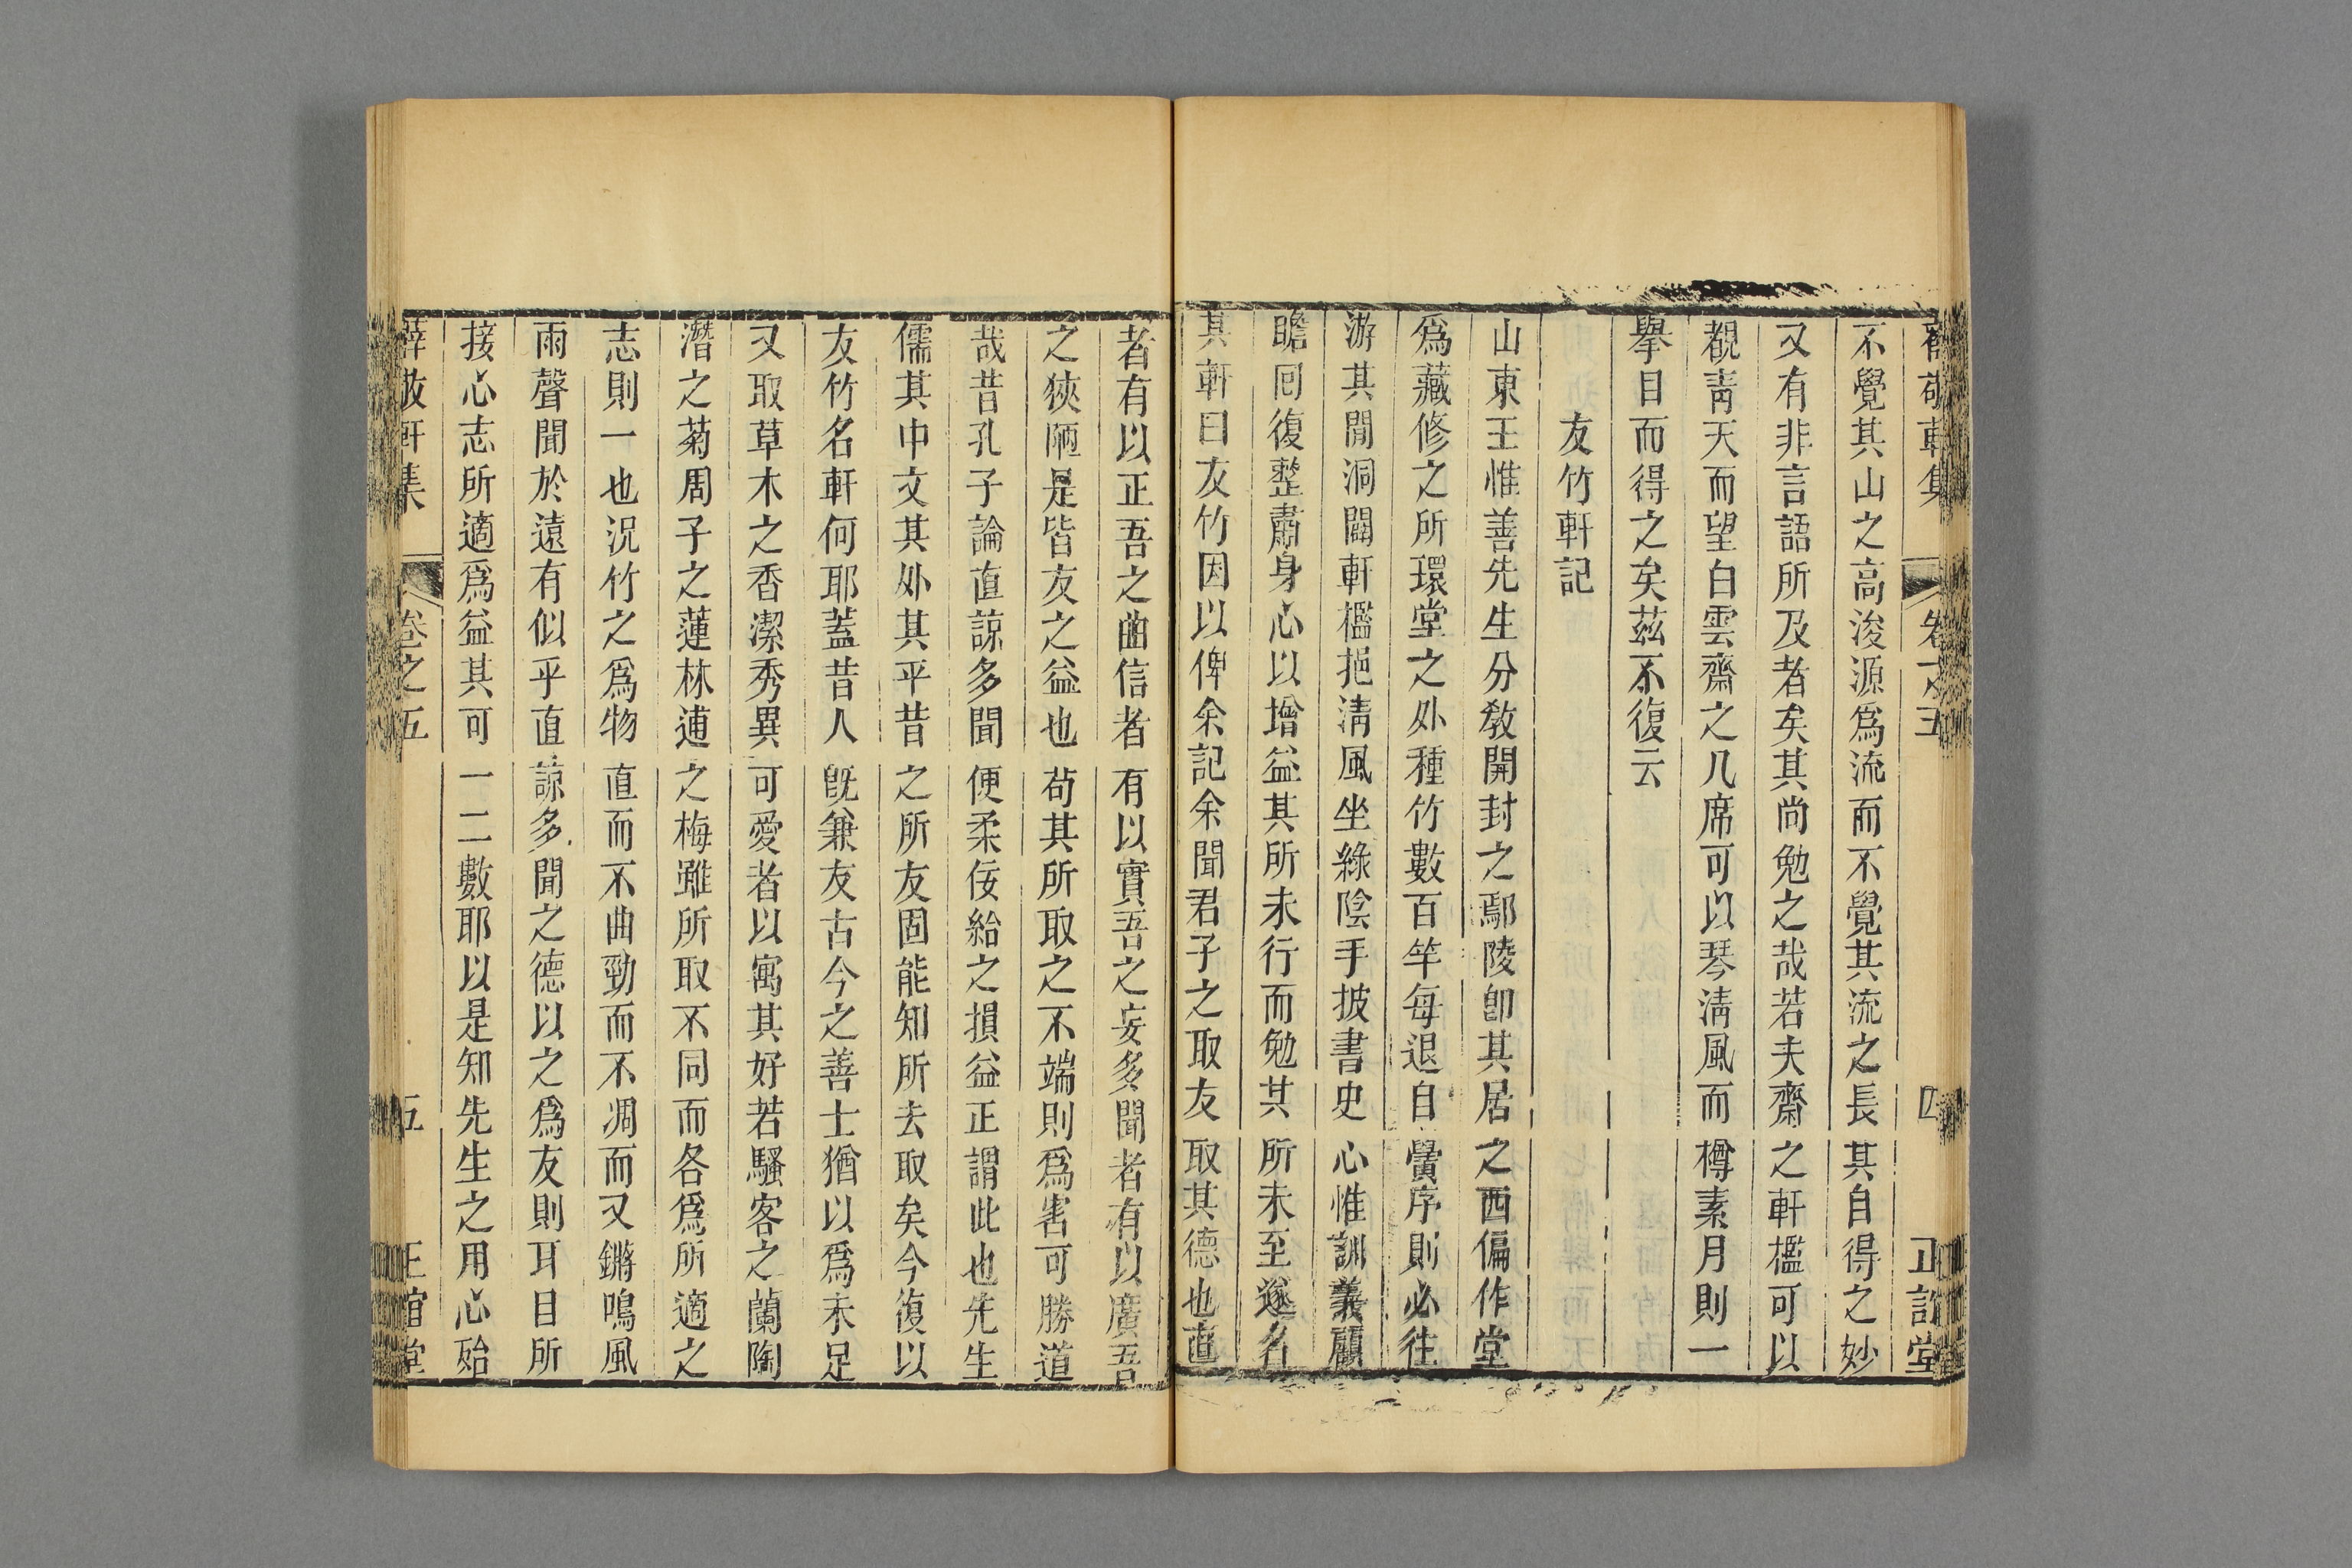 薛敬軒集 卷之五 四 正誼堂
不覺其山之高浚源爲流而不覺其流之長其自得之妙
又有非言語所及者矣其尚勉之哉若夫齋之軒檻可以
覩靑天而望白雲齋之几席可以琴淸風而樽素月則一
舉目而得之矣茲不復云
友竹軒記
山東王惟善先生分敎開封之鄢陵卽其居之西偏作堂
爲藏修之所環堂之外種竹數百竿每退自黌序則必往
游其閒洞闢軒檻挹淸風坐綠陰手披書史心惟訓義顧
瞻囘復整肅身心以增益其所未行而勉其所未至遂名
其軒曰友竹因以俾余記余聞君子之取友取其德也直
者有以正吾之曲信者有以實吾之妄多聞者有以廣吾
之狹陋是皆友之益也苟其所取之不端則爲害可勝道
哉昔孔子論直諒多聞便柔佞給之損益正謂此也先生
儒其中文其外其平昔之所友固能知所去取矣今復以
友竹名軒何耶蓋昔人旣兼友古今之善士猶以爲未足
又取草木之香潔秀異可愛者以寓其好若騷客之蘭陶
潛之菊周子之蓮林逋之梅雖所取不同而各爲所適之
志則一也況竹之爲物直而不曲勁而不凋而又鏘鳴風
雨聲聞於遠有似乎直諒多聞之德以之爲友則耳目所
接心志所適爲益其可一二數耶以是知先生之用心殆
薛敬軒集 卷之五 五 正誼堂